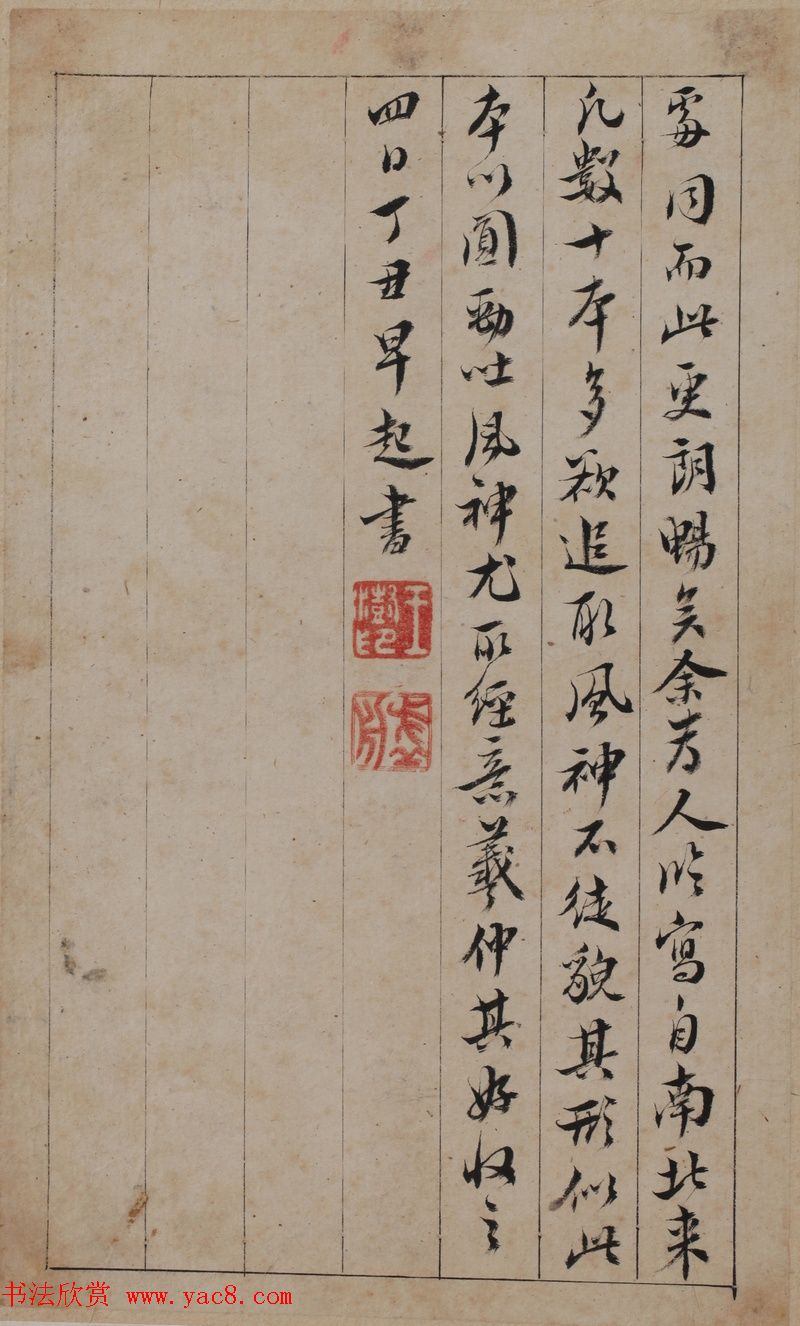 處同而此更朗暢矣余為人臨寫自南北來
凡數十本多欲追取風神不徒貌其形似此
本以圓勁吐風神尤所經意羲仲其好收之
四日丁丑早起書
王澍印
書法欣賞 www.yac8.com